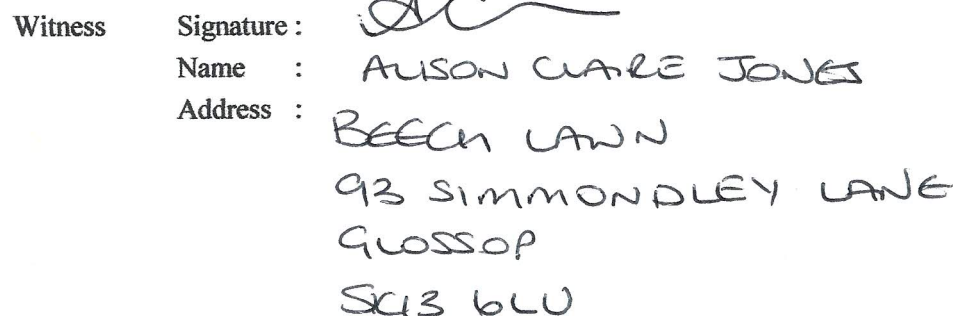 Witness Signature :
Name : ALISON CLAIRE JONES
Address :
BEECH LAWN
93 SIMMONDLEY LANE
GLOSSOP
SK13 6LU